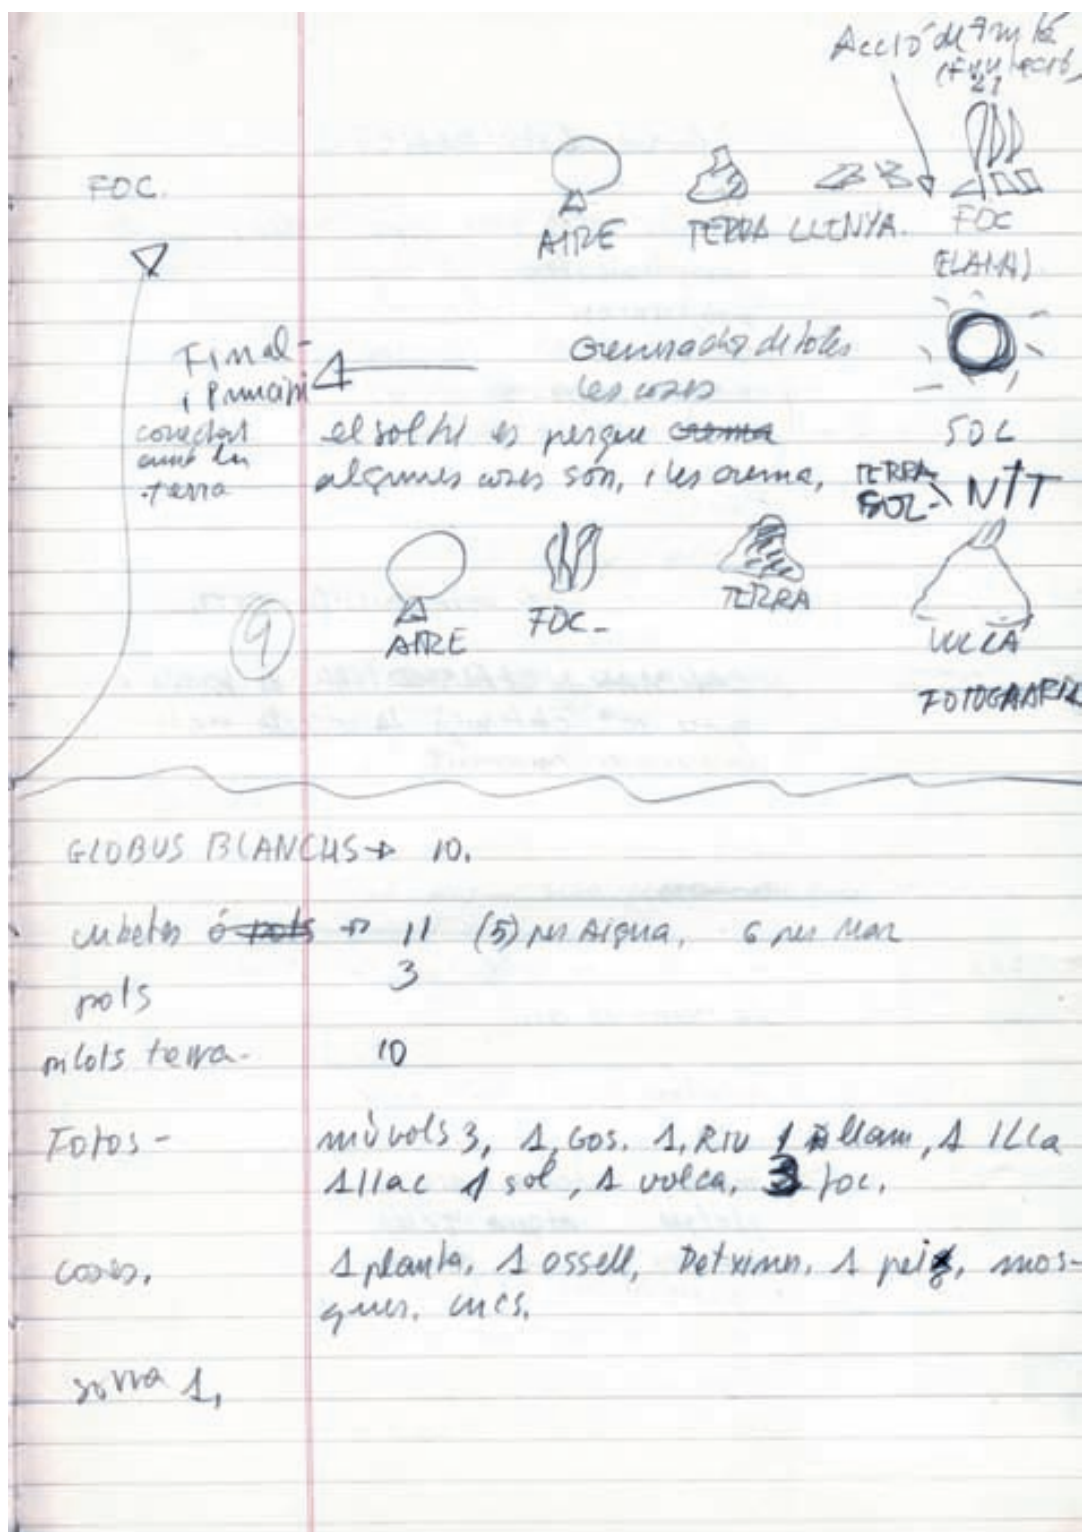 Acció de
FOC.
AIRE TERRA LLENYA. FOC
(FLAMA)
Final
i Principi
conectat
amb la
terra
de totes
les coses
el sol hi es perque crema
algunes coses són, i les crema,
SOL
TERRA
SOL NIT
AIRE FOC - TERRA VOLCÀ
9
FOTOGRAFIA
GLOBUS BLANCHS → 10.
cubetes ó pots → 11 (5) per Aigua, 6 per Mar
pols 3
pilots terra - 10
Fotos - núvols 3, 1, Gos. 1, RIU 1 llam, 1 ILLa
1 llac 1 sol, 1 volca, 3 foc.
coses. 1 planta, 1 ossell, Petxines, 1 peix, mos-
ques. cucs.
sorra 1,